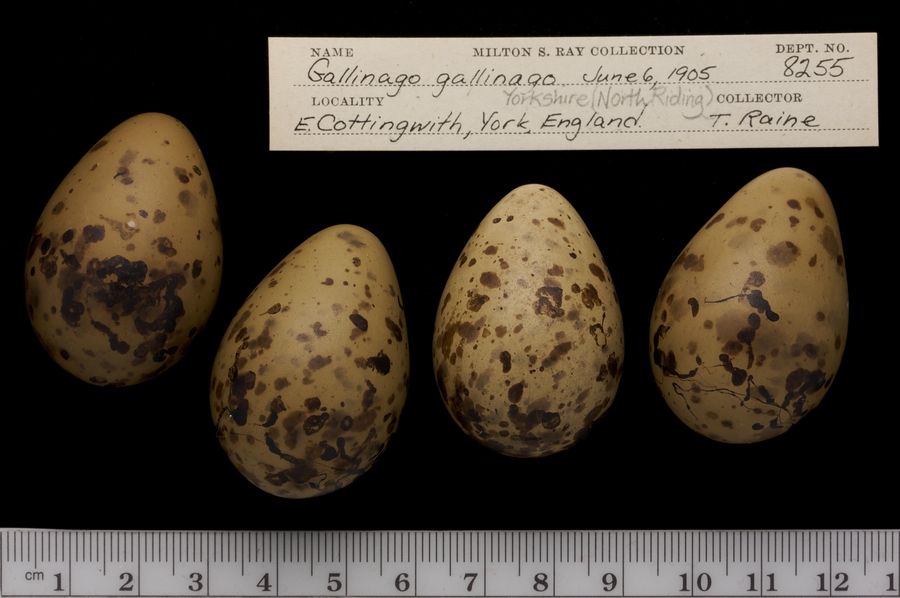 NAME MILTON S. RAY COLLECTION DEPT. NO.
Gallinago gallinago June 6, 1905 8255
LOCALITY Yorkshire (North Riding) COLLECTOR
E. Cottingwith, York, England. T. Raine
cm 1 2 3 4 5 6 7 8 9 10 11 12 1